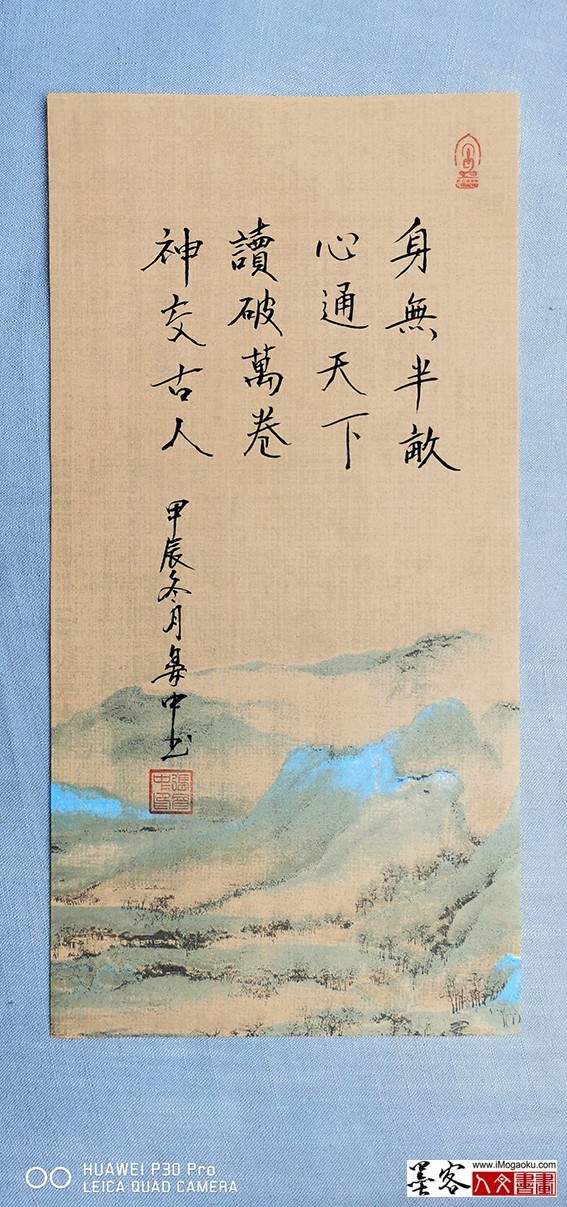 身無半畝
心通天下
讀破萬卷
神交古人
甲辰冬月
中书
HUAWEI P30 Pro
LEICA QUAD CAMERA
墨客
www.iMogaoku.com
人文書畫